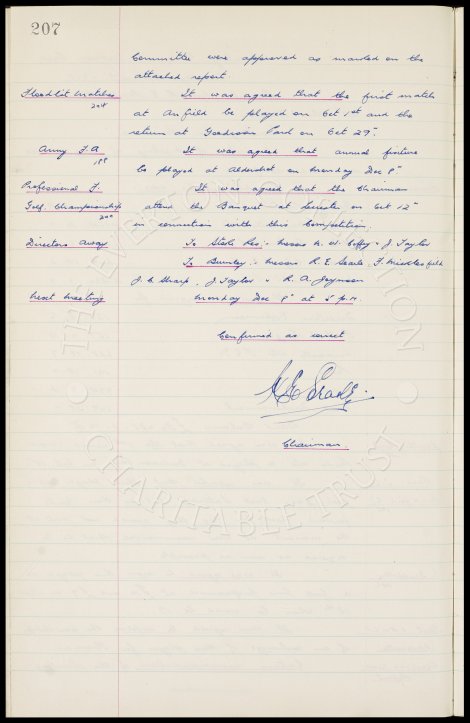 207
Committee were approved as marked on the
attached report
Floodlit Matches It was agreed that the first match
208 at Anfield be played on Oct 1st and the
return at Goodison Park on Oct 29th.
Army F.A. It was agreed that annual fixture
be played at Aldershot on Monday Dec 8th
Professional F. It was agreed that the Chairman
Golf Championship attend the Banquet at Leicester on Oct 12th
in connection with this Competition.
Directors Away To Stoke Res:- Messrs W. Coffey & J Taylor
To Burnley:- Messrs R. E. Searle, F. Micklesfield
J. C. Sharp, J. Taylor & R. A. Joynson
Next Meeting Monday Dec 8th at 5 p.m.
Confirmed as correct
Chairman
THE EVERTON COLLECTION
CHARITABLE TRUST